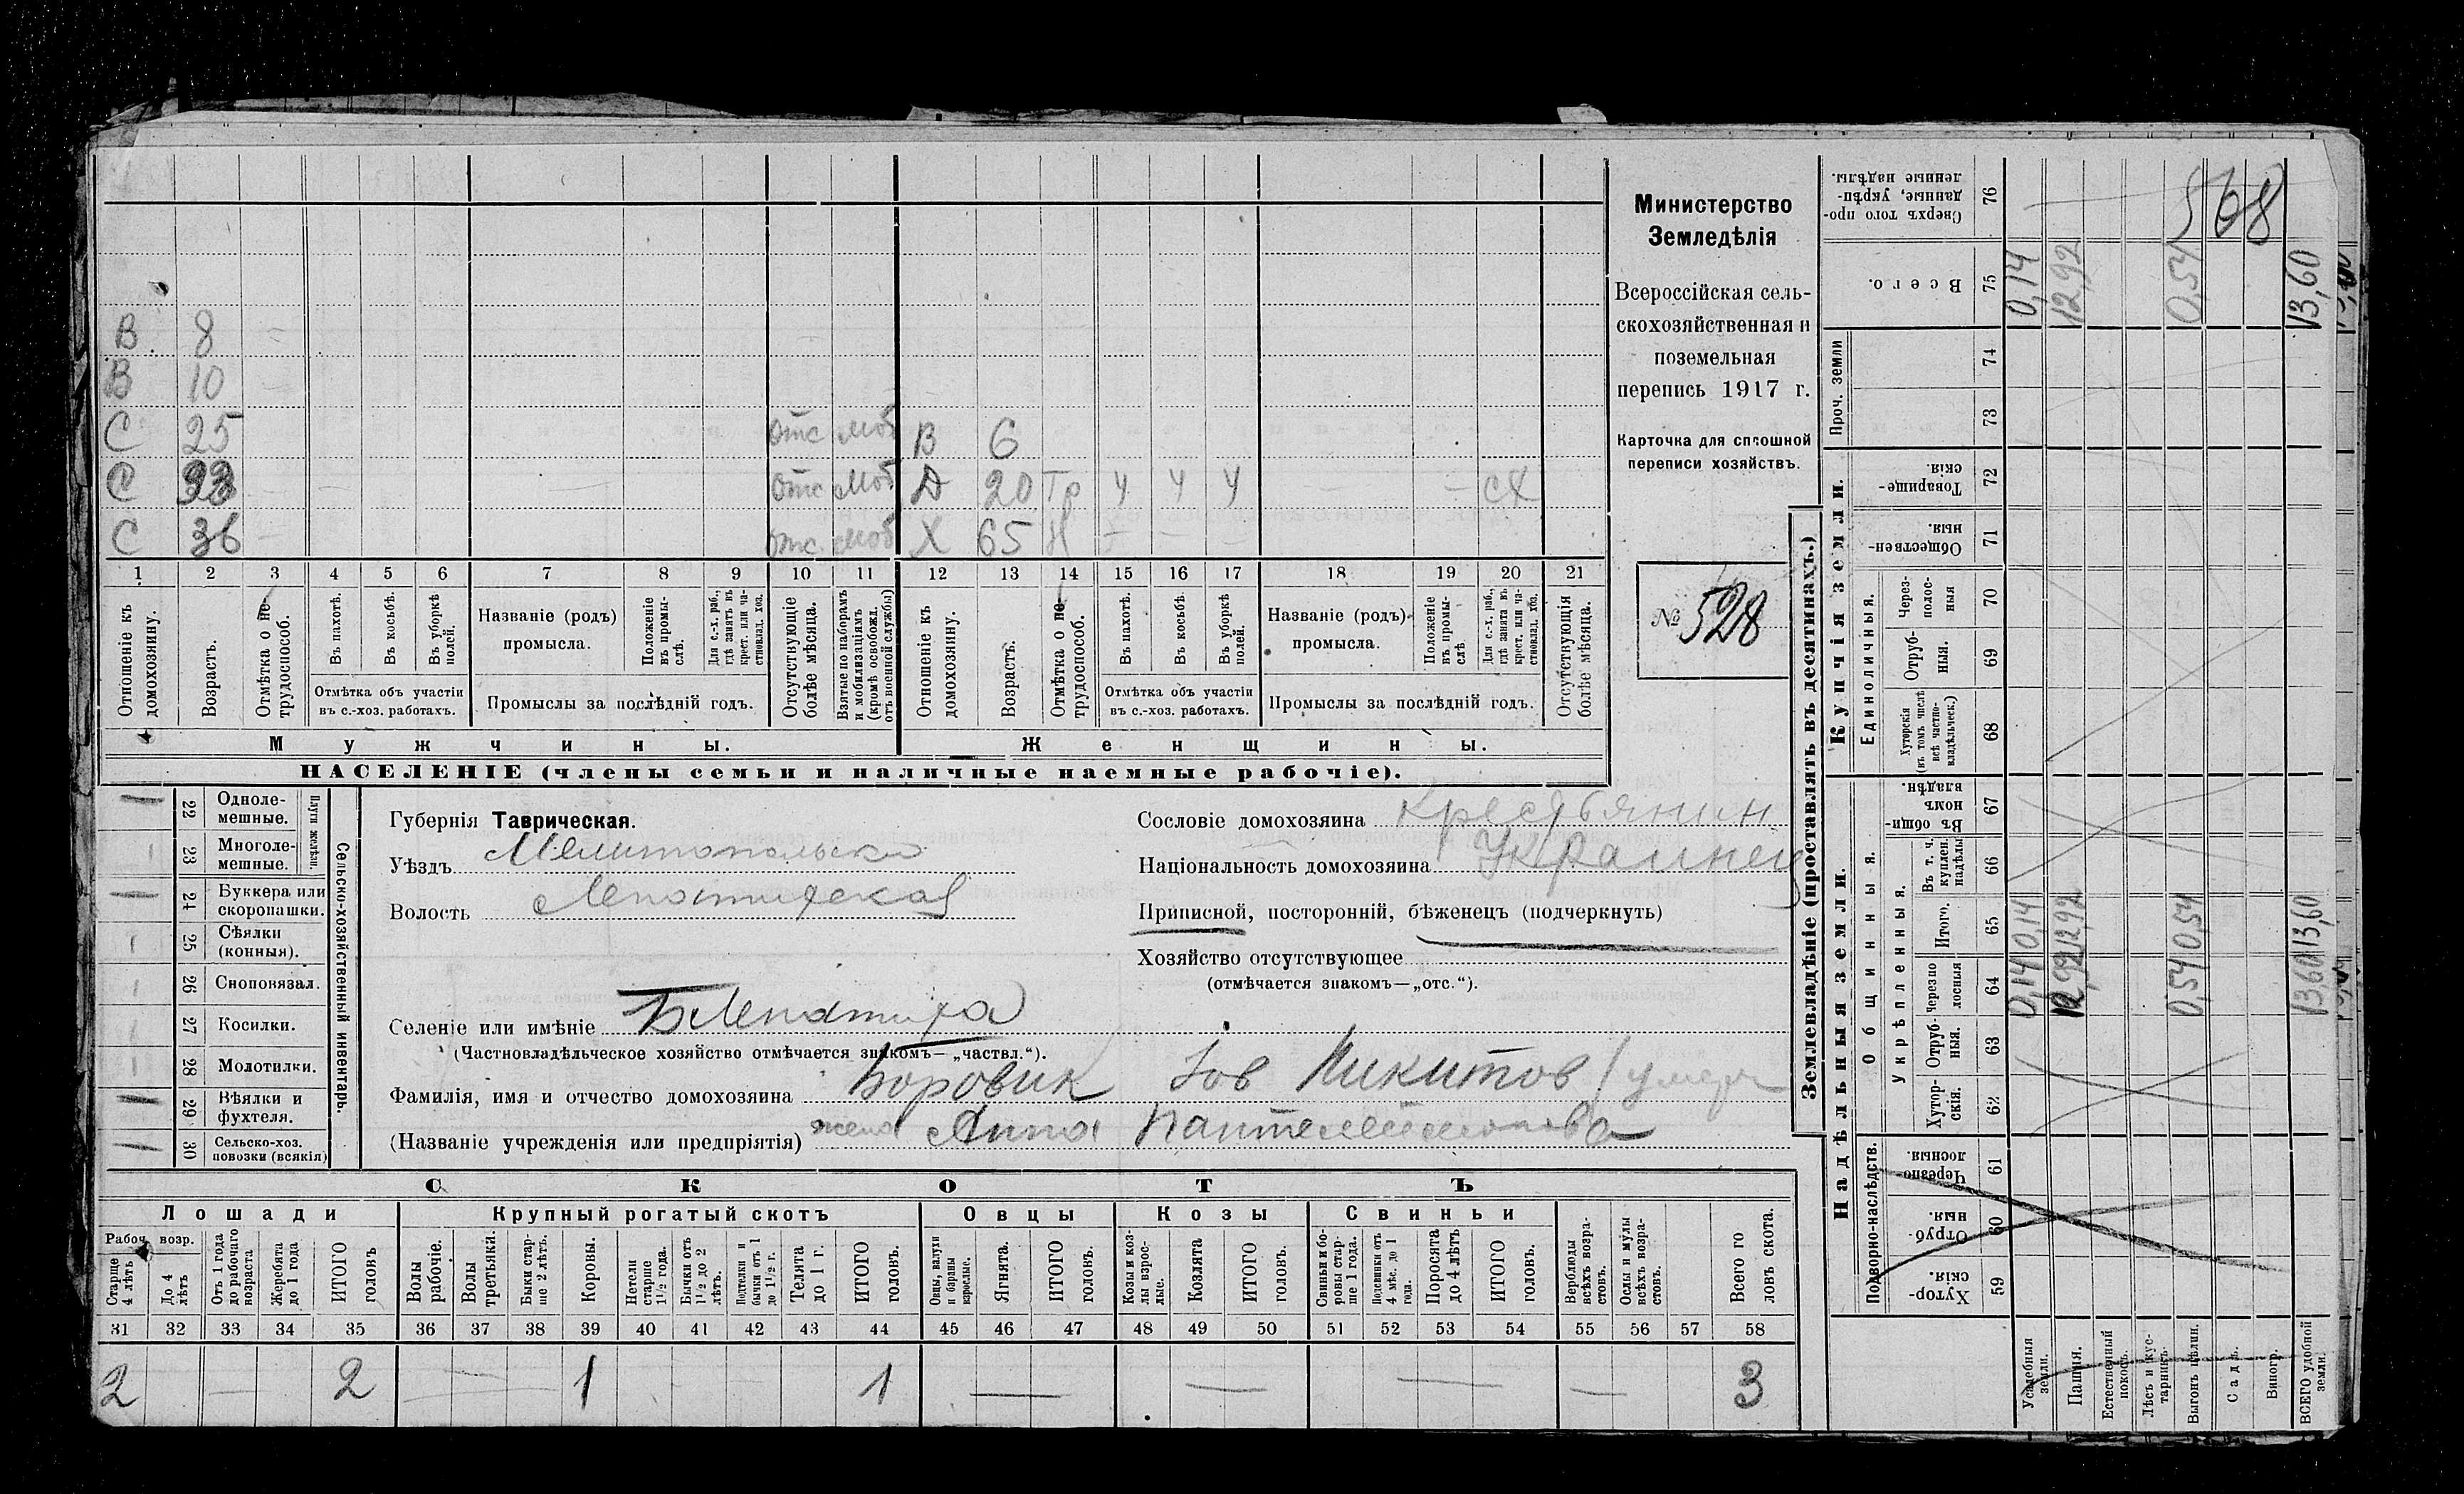 В 8
В 10
С 25 отс моб В 6
С 33 отс моб Д 20 Тр У У У — — сх
С 36 отс. моб Х 65 Н — — —
1 2 3 4 5 6 7 8 9 10 11 12 13 14 15 16 17 18 19 20 21
Отношеніе къ домохозяину.
Возрастъ.
Отмѣтка о не-трудоспособ.
Въ пахотѣ.
Въ косьбѣ.
Въ уборкѣ полей.
Отмѣтка объ участіи
въ с.-хоз. работахъ.
Названіе (родъ)
промысла.
Положеніе въ промы-слѣ.
Для с.-х. раб., гдѣ занятъ въ крест. или ча-стновлад. хоз.
Промыслы за послѣдній годъ.
Отсутствующіе болѣе мѣсяца.
Взятые по наборамъ и мобилизаціямъ (кромѣ освобожд. отъ военной службы)
Отношеніе къ домохозяину.
Возрастъ.
Отмѣтка о не-трудоспособ.
Въ пахотѣ.
Въ косьбѣ.
Въ уборкѣ полей.
Отмѣтка объ участіи
въ с.-хоз. работахъ.
Названіе (родъ)
промысла.
Положеніе въ промы-слѣ
Для с.-х. раб., гдѣ занята въ крест. или ча-стновлад. хоз.
Промыслы за послѣдній годъ.
Отсутствующія болѣе мѣсяца.
Мужчины.
Женщины.
НАСЕЛЕНІЕ (члены семьи и наличные наемные рабочіе).
Министерство
Земледѣлія
Всероссійская сель-
скохозяйственная и
поземельная
перепись 1917 г.
Карточка для сплошной
переписи хозяйствъ.
№ 528
22 Одноле-мешные.
23 Многоле-мешные.
Плуги желѣзн.
24 Буккера или скоропашки.
25 Сѣялки (конныя).
26 Сноповязал.
27 Косилки.
28 Молотилки.
29 Вѣялки и фухтеля.
30 Сельско-хоз. повозки (всякія)
Сельско-хозяйственный инвентарь.
Губернія Таврическая.
Уѣздъ Мелитопольски
Волость
Селеніе или имѣніе
(Частновладѣльческое хозяйство отмѣчается знакомъ—„частвл.“).
Фамилія, имя и отчество домохозяина Боровик Іов Никитов / умер
(Названіе учрежденія или предпріятія) жена Анна
Сословіе домохозяина крестьянин
Національность домохозяина Украинец
Приписной, посторонній, бѣженецъ (подчеркнуть)
Хозяйство отсутствующее
(отмѣчается знакомъ—„отс.“).
СКОТЪ
Лошади
Крупный рогатый скотъ
Овцы
Козы
Свиньи
Рабоч. возр.
Старше 4 лѣтъ
До 4 лѣтъ
Отъ 1 года до рабочаго возраста
Жеребята до 1 года
ИТОГО головъ
Волы рабочіе.
Волы третьяки.
Быки стар-ше 2 лѣтъ.
Коровы.
Нетели старше 1½ года.
Бычки отъ 1½ до 2 лѣтъ.
Подтелки и бычки отъ 1 до 1½ г.
Телята до 1 г.
ИТОГО головъ.
Овцы, валухи и бараны взрослые.
Ягнята.
ИТОГО головъ.
Козы и коз-лы взрос-лые.
Козлята
ИТОГО головъ.
Свиньи и бо-ровы стар-ше 1 года.
Подсвинки отъ 4 мѣс. до 1 года.
Поросята до 4 лѣтъ
ИТОГО головъ.
Верблюды всѣхъ возра-стовъ.
Ослы и мулы всѣхъ возра-стовъ.
Всего го ловъ скота.
31 32 33 34 35 36 37 38 39 40 41 42 43 44 45 46 47 48 49 50 51 52 53 54 55 56 57 58
2 — 2 — 1 — — 1 — — — — 3
Землевладѣніе (проставлять въ десятинахъ.)
Надѣльныя земли.
Купчія земли.
Подворно-наслѣдств.
Общинныя.
Укрѣпленныя.
Единоличныя.
Проч. земли
Сверхъ того про-данные, укрѣп-ленные надѣлы. 76
Всего. 75 0,14 12,92 0,54 13,60
568
74
73
Товарище-скія. 72
Обществен-ныя. 71
Через-полос-ныя 70
Отруб-ныя. 69
Хуторскія (въ томъ числѣ всѣ частно-владѣльческ.) 68
Въ общи-номъ владѣн. 67
Въ т. ч. куплен. надѣлы 66
Итого. 65 0,14 12,92 0,54 13,60
Черезпо лосныя 64 0,14 12,92 0,54 13,60
Отруб-ныя. 63
Хутор-скія. 62
Черезпо-лосныя. 61
Отруб-ныя. 60
Хутор-скія. 59
Усадебныя земли.
Пашня.
Естественный покосъ.
Лѣсъ и кус-тарникъ.
Выгонъ цѣлин.
Садъ.
Виногр.
ВСЕГО удобной земли.